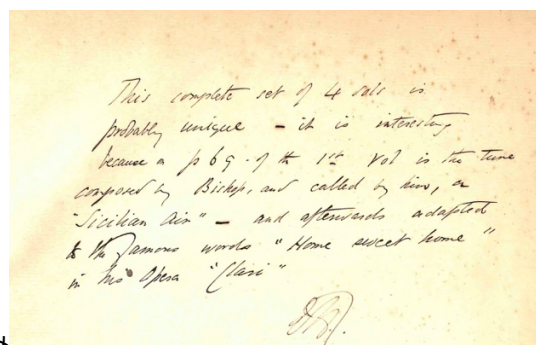 This complete set of 4 vols is
probably unique - it is interesting
because on p 69 . of the 1st Vol is the tune
composed by Bishop, and called by him, a
"Sicilian Air" - and afterwards adapted
to the famous words "Home sweet home"
in his Opera "Clari"